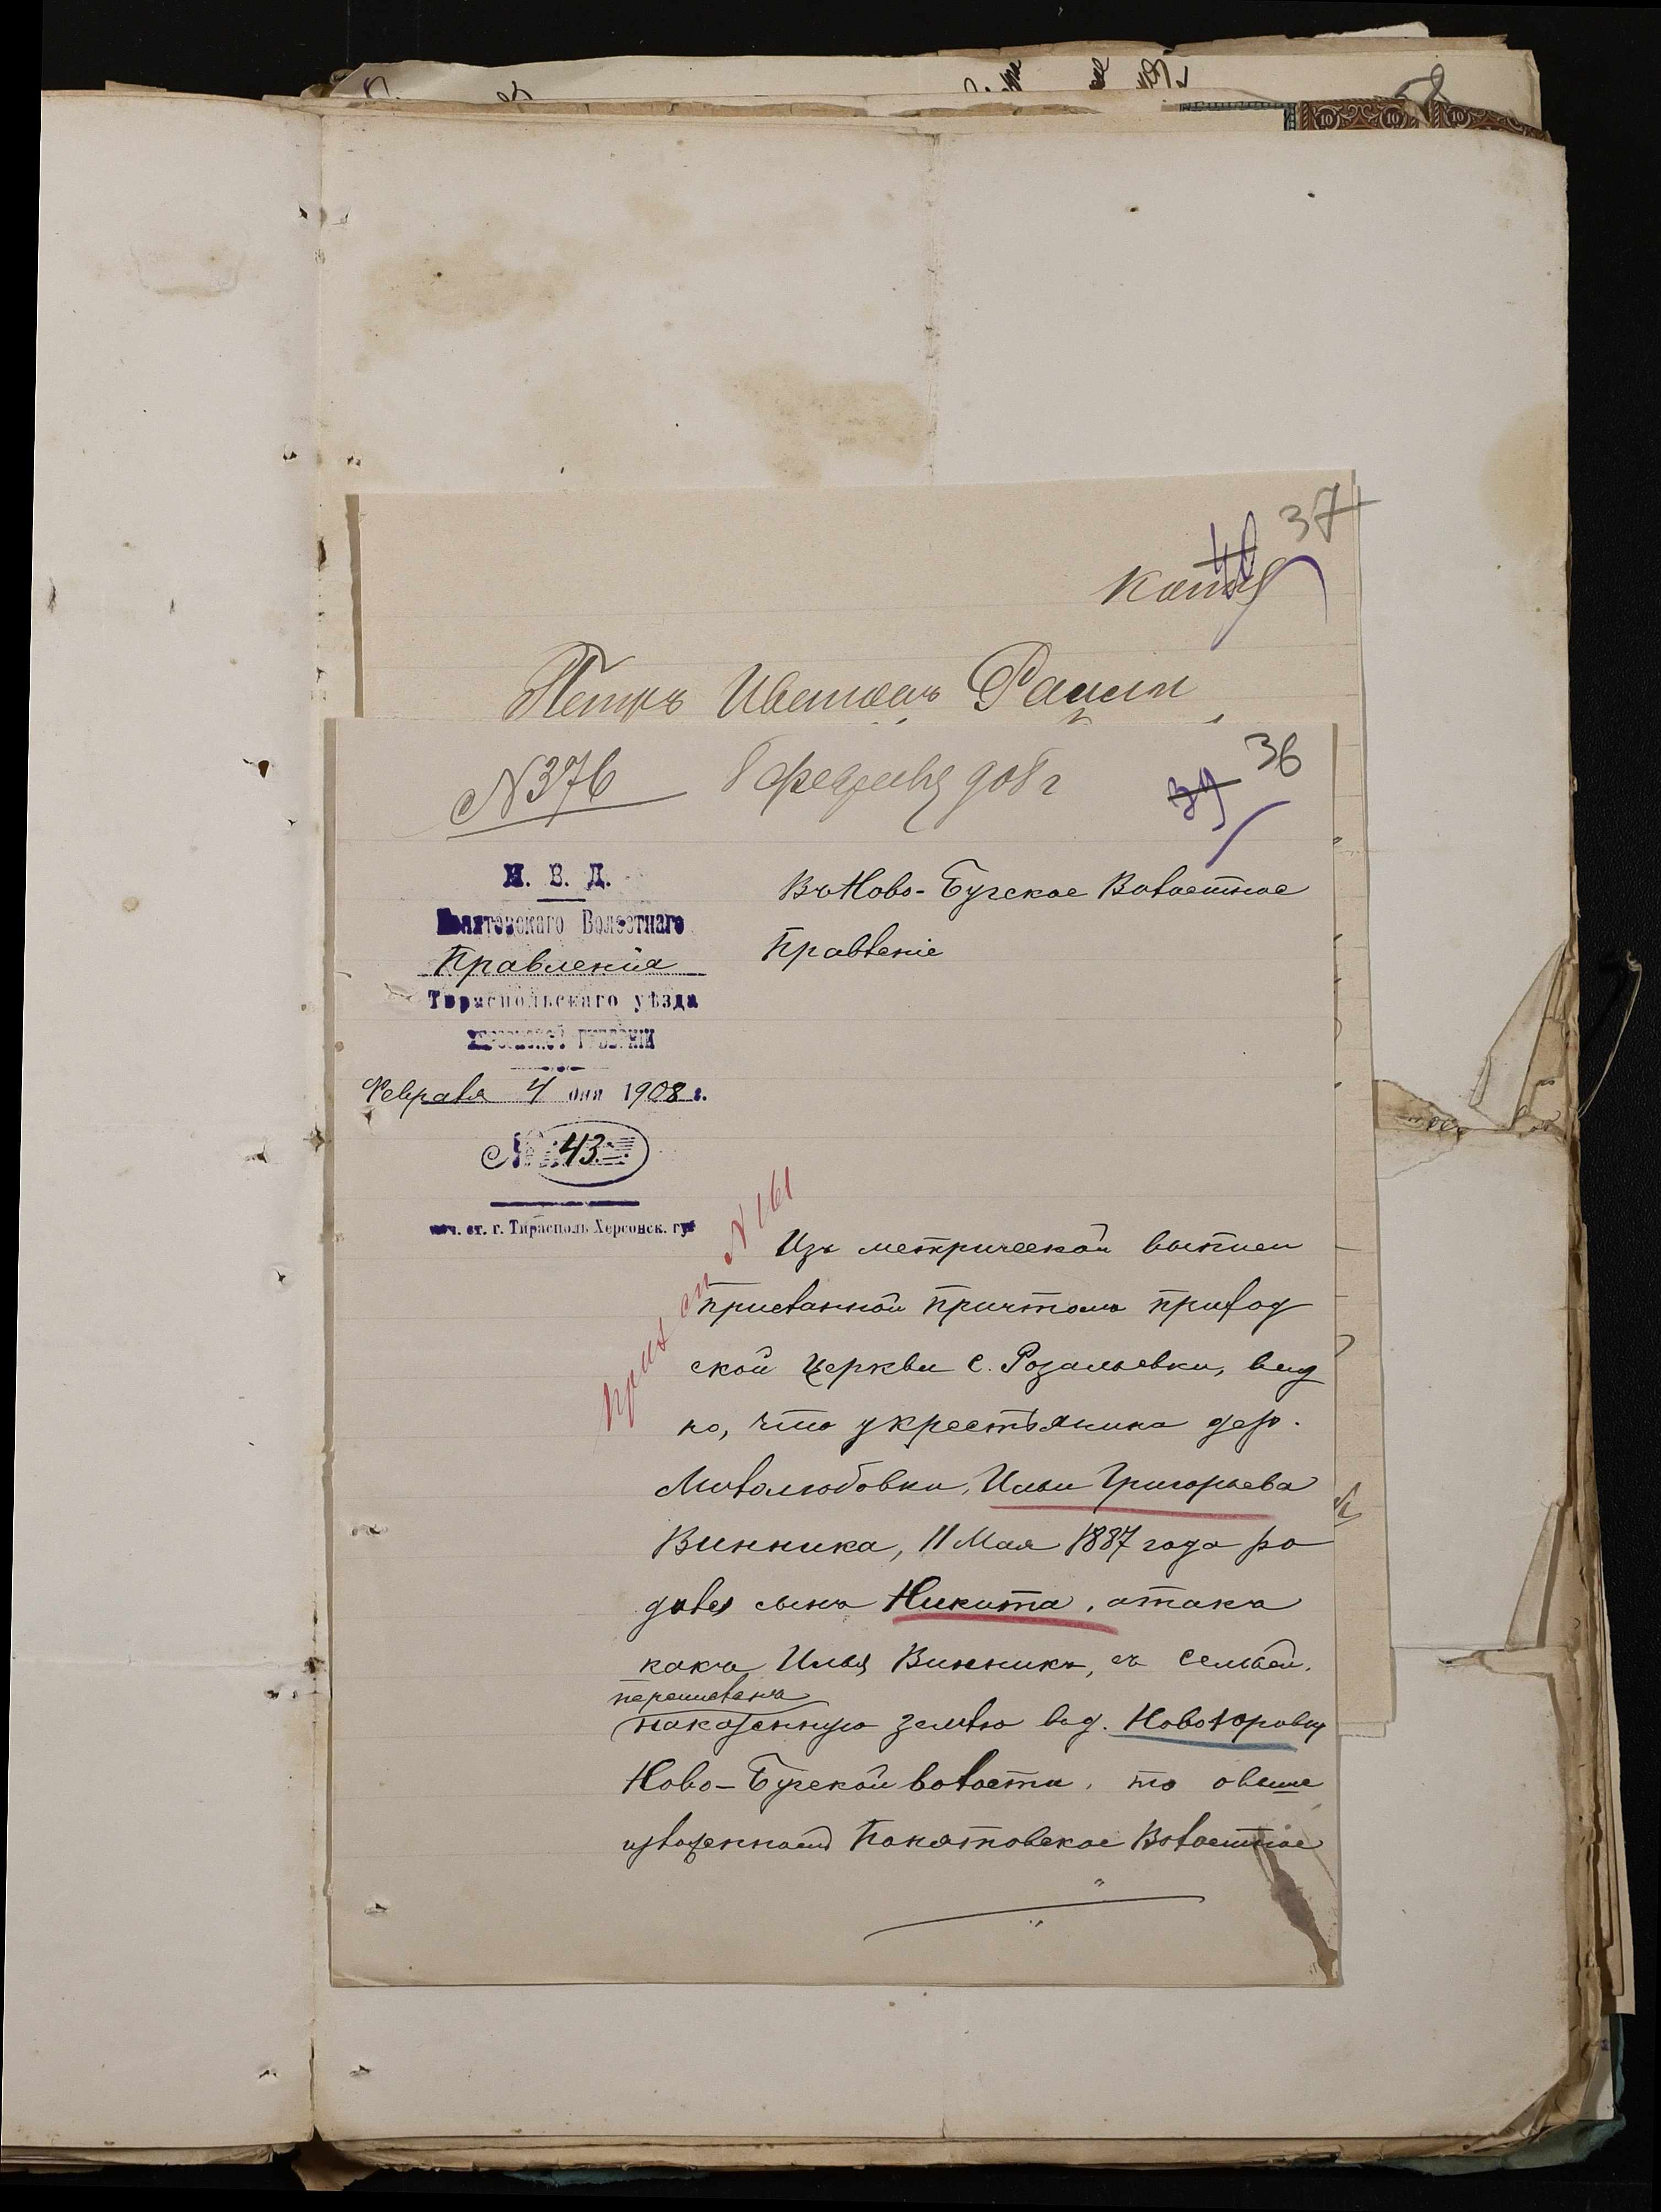 37
40
Копія
Петръ Ивановъ
№376 8 февраля 908 г
36
39
М. В. Д.
Понятовскаго Волостнаго
Правленія
Тираспольскаго уѣзда
Херсонской губерніи
Февраля 4 дня 1908 г.
№ 43
поч. ст. г. Тирасполь Херсонск. губ
Въ Ново-Бугское Волостное
Правленіе
№ 161
Изъ метрической выписи
присланной причтомъ приход
ской церкви с. Розальевки, вид
но, что у крестьянина дер.
Миволюбовки, Ильи Григорьева
Винника, 11 Мая 1887 года ро
дился сынъ Никита, а такъ
какъ Илья Винникъ, съ семьей,
перечисленъ
на казенную землю въ д. Новоюровку
Ново-Бугской волости, то о выше
изложенномъ Понятовское Волостное